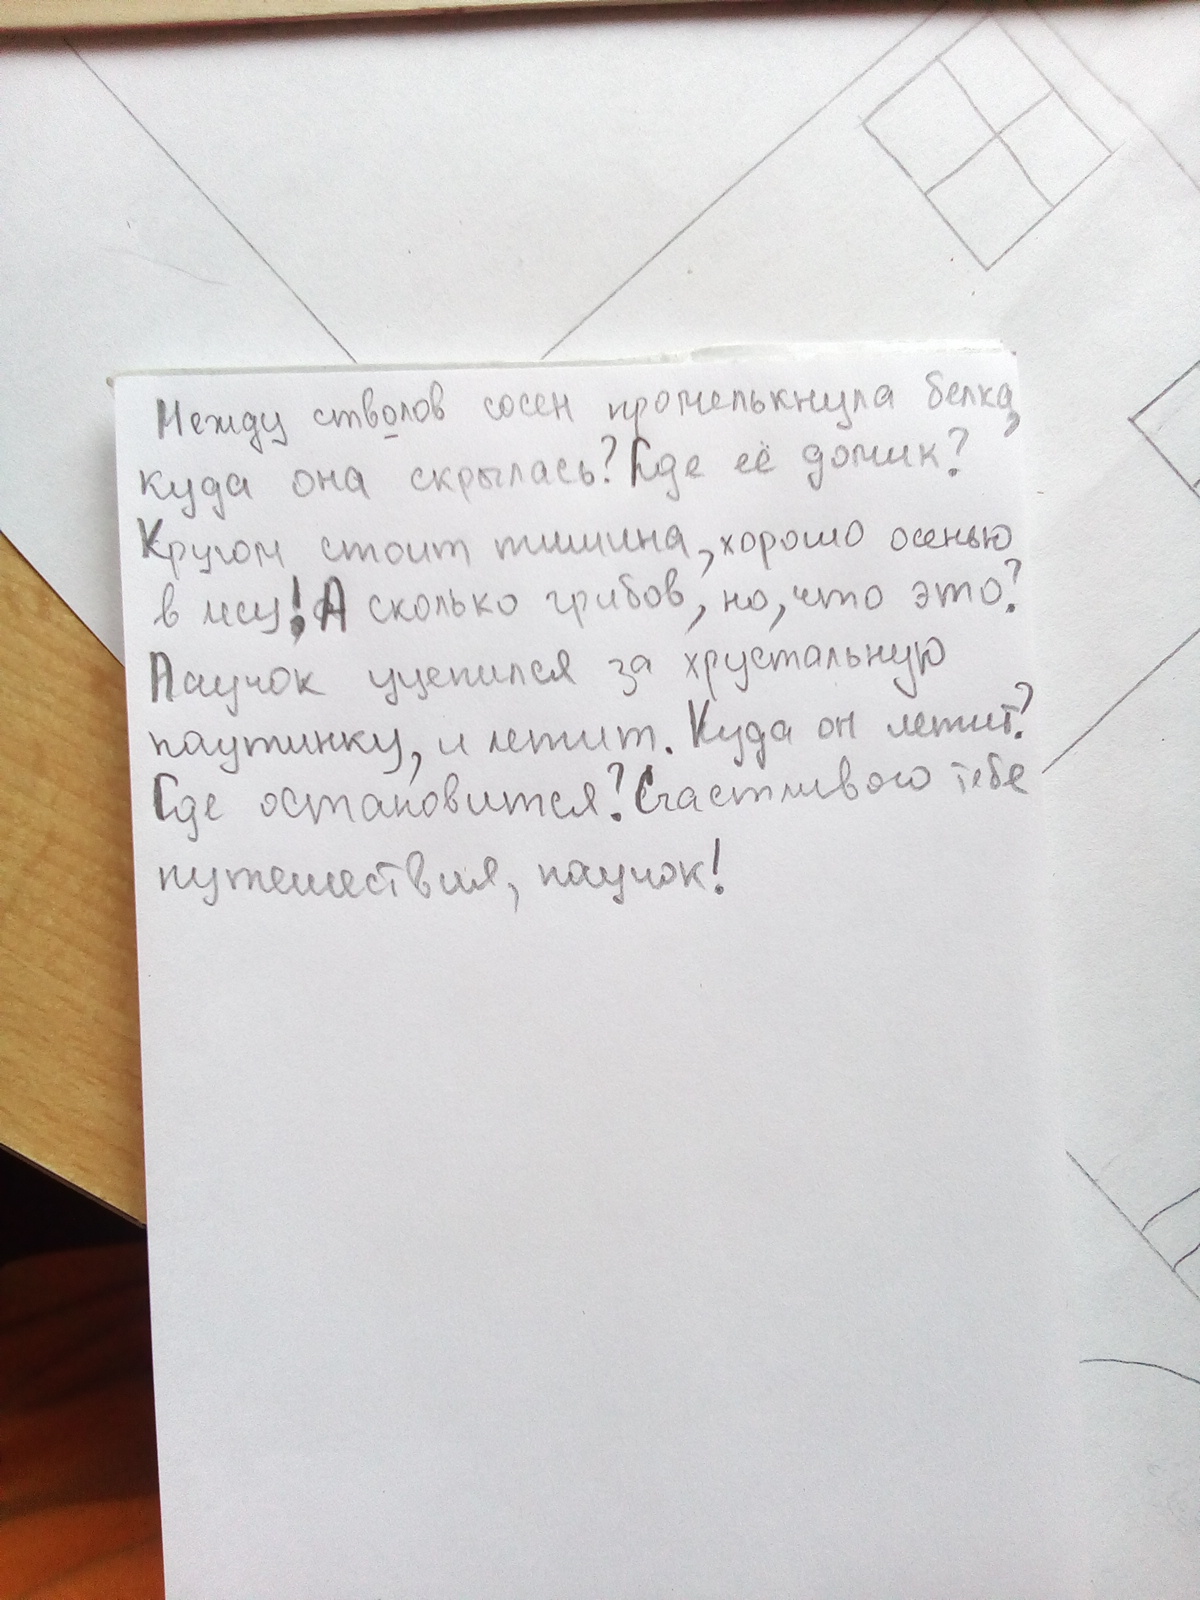 Между стволов сосен промелькнула белка,
куда она скрылась? Где её домик?
Кругом стоит тишина, хорошо осенью
в лесу! А сколько грибов, но, что это?
Паучок уцепился за хрустальную
паутинку, и летит. Куда он летит?
Где остановится? Счастливого тебе
путешествия, паучок!